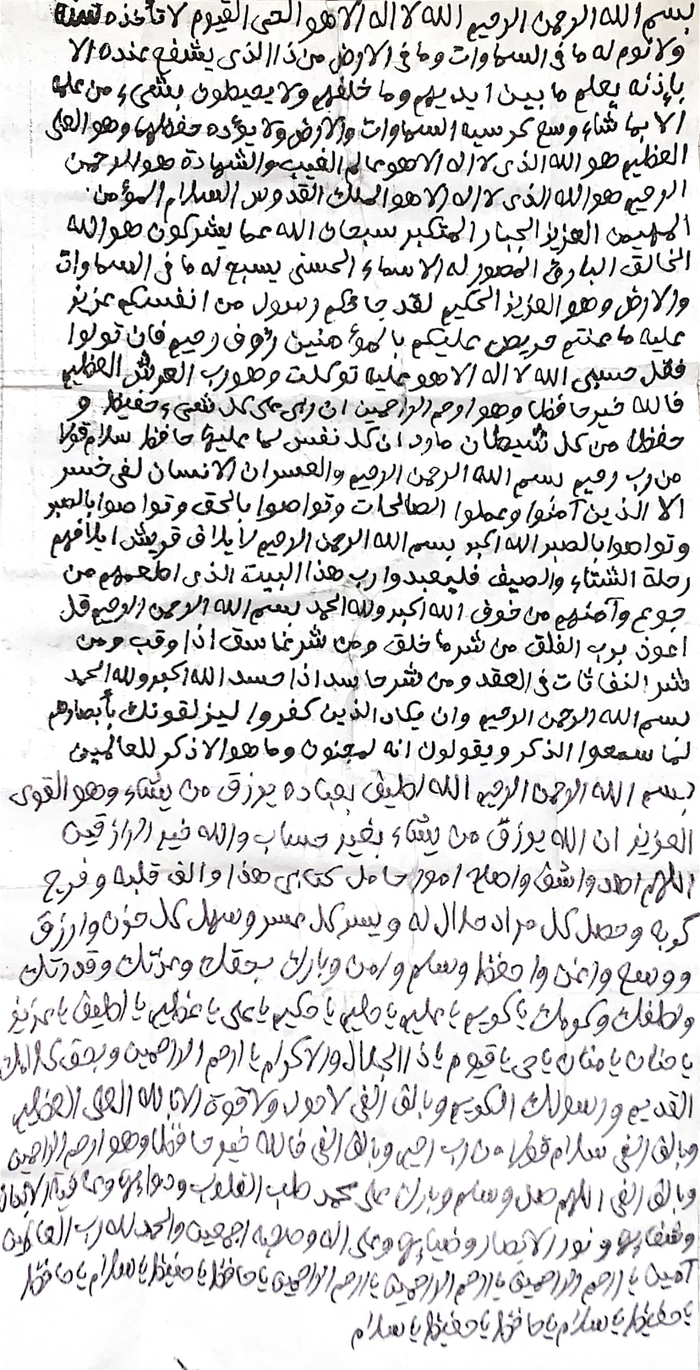 بسم الله الرحمن الرحيم الله لا اله الا هو الحي القيوم لا تأخذه سنة
ولا نوم له ما في السماوات وما في الارض من ذا الذي يشفع عنده الا
بإذنه يعلم ما بين ايديهم وما خلفهم ولا يحيطون بشيء من علمه
الا بما شاء وسع كرسيه السماوات والارض ولا يؤده حفظهما وهو العلي
العظيم هو الله الذي لا اله الا هو عالم الغيب والشهادة هو الرحمن
الرحيم هو الله الذي لا اله الا هو الملك القدوس السلام المؤمن
المهيمن العزيز الجبار المتكبر سبحان الله عما يشركون هو الله
الخالق البارئ المصور له الاسماء الحسنى يسبح له ما في السماوات
والارض وهو العزيز الحكيم لقد جاءكم رسول من انفسكم عزيز
عليه ما عنتم حريص عليكم بالمؤمنين رؤوف رحيم فان تولوا
فقل حسبي الله لا اله الا هو عليه توكلت وهو رب العرش العظيم
فالله خير حافظا وهو ارحم الراحمين ان ربي على كل شيء حفيظ و
حفظا من كل شيطان مارد ان كل نفس لما عليها حافظ سلام قولا
من رب رحيم بسم الله الرحمن الرحيم والعصر ان الانسان لفي خسر
الا الذين آمنوا وعملوا الصالحات وتواصوا بالحق وتواصوا بالصبر
وتواصوا بالصبر الله اكبر بسم الله الرحمن الرحيم لايلاف قريش ايلافهم
رحلة الشتاء والصيف فليعبدوا رب هذا البيت الذي اطعمهم من
جوع وآمنهم من خوف الله اكبر ولله الحمد بسم الله الرحمن الرحيم قل
اعوذ برب الفلق من شر ما خلق ومن شر غاسق اذا وقب ومن
شر النفاثات في العقد ومن شر حاسد اذا حسد الله اكبر ولله الحمد
بسم الله الرحمن الرحيم وان يكاد الذين كفروا ليزلقونك بأبصارهم
لما سمعوا الذكر ويقولون انه لمجنون وما هو الا ذكر للعالمين
بسم الله الرحمن الرحيم الله لطيف بعباده يرزق من يشاء وهو القوي
العزيز ان الله يرزق من يشاء بغير حساب والله خير الرازقين
اللهم اهد واشف واصلح امور حامل كتابي هذا والف قلبه وفرج
كربه وحصل كل مراد حلال له ويسر كل عسر وسهل كل حزن وارزق
ووسع واغن واحفظ وسلم وامن وبارك بحقك وعزتك وقدرتك
ولطفك وكرمك يا كريم يا عليم يا حليم يا حكيم يا علي يا عظيم يا لطيف يا عزيز
يا حنان يا منان يا حي يا قيوم يا ذا الجلال والاكرام يا ارحم الراحمين وبحق كلامك
القديم ورسولك الكريم وبالف الف لا حول ولا قوة الا بالله العلي العظيم
وبالف الف سلام قولا من رب رحيم وبالف الف فالله خير حافظا وهو ارحم الراحمين
وبالف الف اللهم صل وسلم وبارك على محمد طب القلوب ودوائها وعافية الابدان
وشفائها ونور الابصار وضيائها وعلى اله وصحبه اجمعين والحمد لله رب العالمين
آمين يا ارحم الراحمين يا ارحم الراحمين يا ارحم الراحمين يا حافظ يا حفيظ يا سلام يا حافظ
يا حفيظ يا سلام يا حافظ يا حفيظ يا سلام